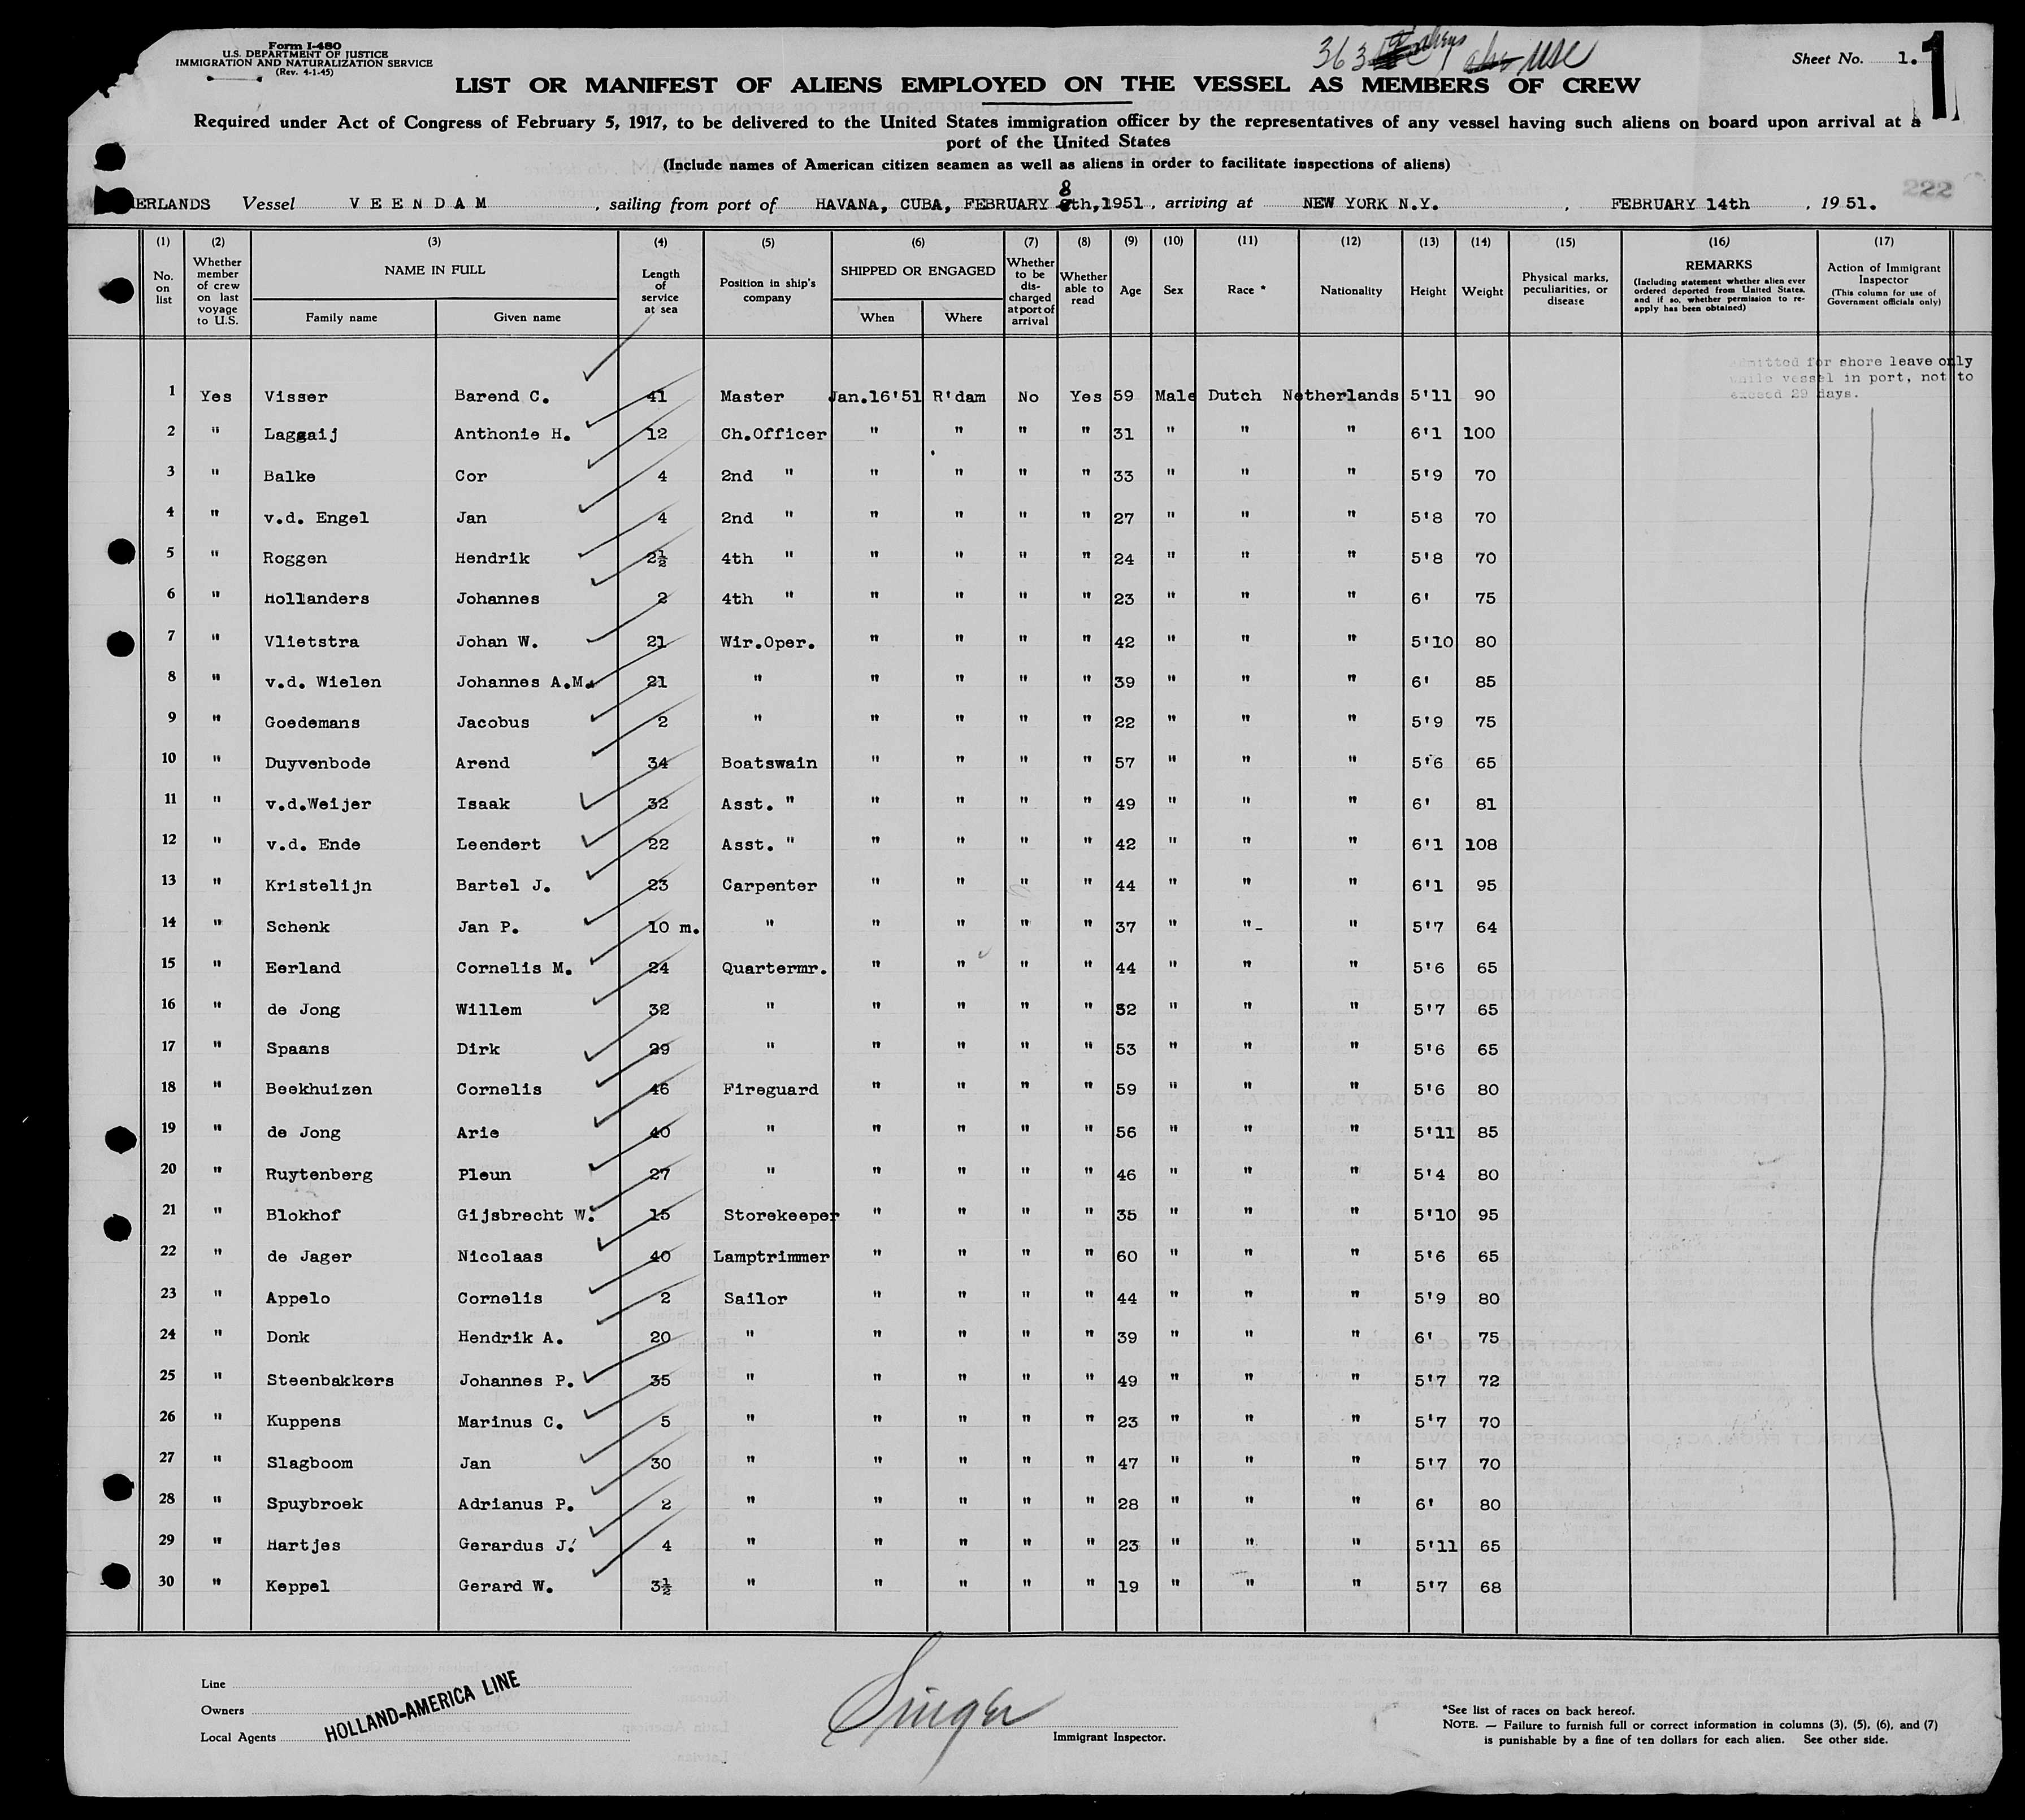 Form I-480
U.S. DEPARTMENT OF JUSTICE
IMMIGRATION AND NATURALIZATION SERVICE
(Rev. 4-1-45)
363
use
Sheet No. 1.
1
LIST OR MANIFEST OF ALIENS EMPLOYED ON THE VESSEL AS MEMBERS OF CREW
Required under Act of Congress of February 5, 1917, to be delivered to the United States immigration officer by the representatives of any vessel having such aliens on board upon arrival at a
port of the United States
(Include names of American citizen seamen as well as aliens in order to facilitate inspections of aliens)
222
ERLANDS Vessel VEENDAM, sailing from port of HAVANA, CUBA, FEBRUARY 8th, 1951, arriving at NEW YORK N.Y., FEBRUARY 14th, 1951.
(1) (2) (3) (4) (5) (6) (7) (8) (9) (10) (11) (12) (13) (14) (15) (16) (17)
No. on list
Whether member of crew on last voyage to U.S.
NAME IN FULL
Family name Given name
Length of service at sea
Position in ship's company
SHIPPED OR ENGAGED
When Where
Whether to be discharged at port of arrival
Whether able to read
Age Sex Race * Nationality Height Weight
Physical marks, peculiarities, or disease
REMARKS
(Including statement whether alien ever ordered deported from United States, and if so, whether permission to reapply has been obtained)
Action of Immigrant Inspector
(This column for use of Government officials only)
admitted for shore leave only
while vessel in port, not to
exceed 29 days.
1 Yes Visser Barend C. 41 Master Jan.16'51 R'dam No Yes 59 Male Dutch Netherlands 5'11 90
2 " Laggaij Anthonie H. 12 Ch.Officer " " " " 31 " " " 6'1 100
3 " Balke Cor 4 2nd " " " " " 33 " " " 5'9 70
4 " v.d. Engel Jan 4 2nd " " " " " 27 " " " 5'8 70
5 " Roggen Hendrik 2½ 4th " " " " " 24 " " " 5'8 70
6 " Hollanders Johannes 2 4th " " " " " 23 " " " 6' 75
7 " Vlietstra Johan W. 21 Wir.Oper. " " " " 42 " " " 5'10 80
8 " v.d. Wielen Johannes A.M. 21 " " " " " 39 " " " 6' 85
9 " Goedemans Jacobus 2 " " " " " 22 " " " 5'9 75
10 " Duyvenbode Arend 34 Boatswain " " " " 57 " " " 5'6 65
11 " v.d.Weijer Isaak 32 Asst. " " " " " 49 " " " 6' 81
12 " v.d. Ende Leendert 22 Asst. " " " " " 42 " " " 6'1 108
13 " Kristelijn Bartel J. 23 Carpenter " " " " 44 " " " 6'1 95
14 " Schenk Jan P. 10 m. " " " " " 37 " "- " 5'7 64
15 " Eerland Cornelis M. 24 Quartermr. " " " " 44 " " " 5'6 65
16 " de Jong Willem 32 " " " " " 52 " " " 5'7 65
17 " Spaans Dirk 29 " " " " " 53 " " " 5'6 65
18 " Beekhuizen Cornelis 46 Fireguard " " " " 59 " " " 5'6 80
19 " de Jong Arie 40 " " " " " 56 " " " 5'11 85
20 " Ruytenberg Pleun 27 " " " " " 46 " " " 5'4 80
21 " Blokhof Gijsbrecht W. 15 Storekeeper " " " " 35 " " " 5'10 95
22 " de Jager Nicolaas 40 Lamptrimmer " " " " 60 " " " 5'6 65
23 " Appelo Cornelis 2 Sailor " " " " 44 " " " 5'9 80
24 " Donk Hendrik A. 20 " " " " " 39 " " " 6' 75
25 " Steenbakkers Johannes P. 35 " " " " " 49 " " " 5'7 72
26 " Kuppens Marinus C. 5 " " " " " 23 " " " 5'7 70
27 " Slagboom Jan 30 " " " " " 47 " " " 5'7 70
28 " Spuybroek Adrianus P. 2 " " " " " 28 " " " 6' 80
29 " Hartjes Gerardus J. 4 " " " " " 23 " " " 5'11 65
30 " Keppel Gerard W. 3½ " " " " " 19 " " " 5'7 68
Line
Owners
Local Agents
HOLLAND-AMERICA LINE
Singer
Immigrant Inspector.
*See list of races on back hereof.
NOTE. — Failure to furnish full or correct information in columns (3), (5), (6), and (7)
is punishable by a fine of ten dollars for each alien. See other side.